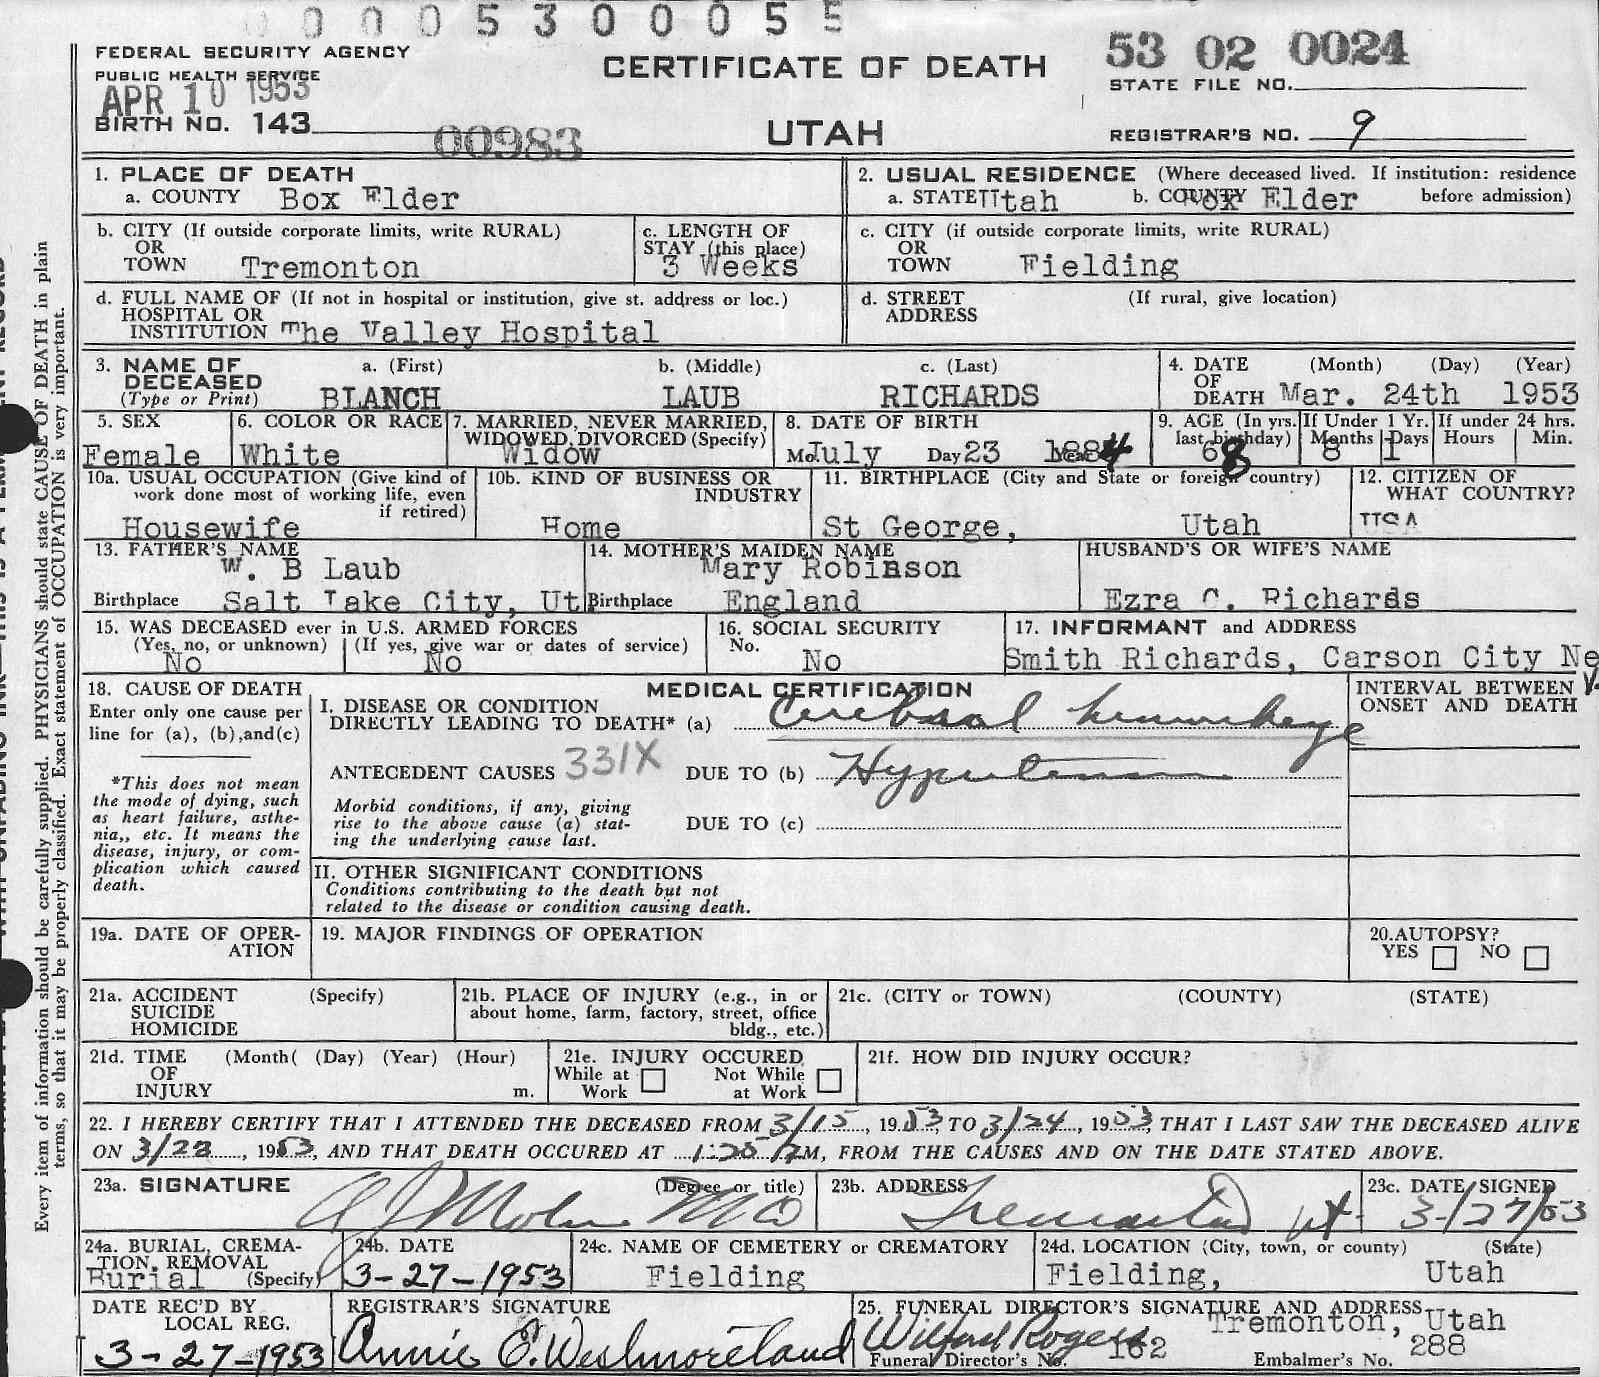 0 0 0 5 3 0 0 0 5 5
FEDERAL SECURITY AGENCY
PUBLIC HEALTH SERVICE
APR 10 1953
BIRTH NO. 143
00983
CERTIFICATE OF DEATH
UTAH
53 02 0024
STATE FILE NO.
REGISTRAR'S NO. 9
1. PLACE OF DEATH
a. COUNTY Box Elder
2. USUAL RESIDENCE (Where deceased lived. If institution: residence
a. STATE Utah b. COUNTY Box Elder before admission)
b. CITY (If outside corporate limits, write RURAL)
OR
TOWN Tremonton
c. LENGTH OF
STAY (this place)
3 Weeks
c. CITY (if outside corporate limits, write RURAL)
OR
TOWN Fielding
d. FULL NAME OF (If not in hospital or institution, give st. address or loc.)
HOSPITAL OR
INSTITUTION The Valley Hospital
d. STREET (If rural, give location)
ADDRESS
3. NAME OF a. (First) b. (Middle) c. (Last)
DECEASED
(Type or Print) BLANCH LAUB RICHARDS
4. DATE (Month) (Day) (Year)
OF
DEATH Mar. 24th 1953
5. SEX
Female
6. COLOR OR RACE
White
7. MARRIED, NEVER MARRIED,
WIDOWED, DIVORCED (Specify)
Widow
8. DATE OF BIRTH
Mo July Day 23 Year 1884
9. AGE (In yrs.
last birthday)
68
If Under 1 Yr.
Months Days
8 1
If under 24 hrs.
Hours Min.
10a. USUAL OCCUPATION (Give kind of
work done most of working life, even
if retired)
Housewife
10b. KIND OF BUSINESS OR
INDUSTRY
Home
11. BIRTHPLACE (City and State or foreign country)
St George, Utah
12. CITIZEN OF
WHAT COUNTRY?
USA
13. FATHER'S NAME
W. B Laub
Birthplace Salt Lake City, Ut
14. MOTHER'S MAIDEN NAME
Mary Robinson
Birthplace England
HUSBAND'S OR WIFE'S NAME
Ezra C. Richards
15. WAS DECEASED ever in U.S. ARMED FORCES
(Yes, no, or unknown) (If yes, give war or dates of service)
No No
16. SOCIAL SECURITY
No.
No
17. INFORMANT and ADDRESS
Smith Richards, Carson City Nev.
18. CAUSE OF DEATH
Enter only one cause per
line for (a), (b),and(c)
*This does not mean
the mode of dying, such
as heart failure, asthe-
nia,, etc. It means the
disease, injury, or com-
plication which caused
death.
MEDICAL CERTIFICATION
I. DISEASE OR CONDITION
DIRECTLY LEADING TO DEATH* (a) Cerebral hemorrhage
ANTECEDENT CAUSES 331X DUE TO (b) Hypertension
Morbid conditions, if any, giving
rise to the above cause (a) stat-
ing the underlying cause last.
DUE TO (c)
INTERVAL BETWEEN
ONSET AND DEATH
II. OTHER SIGNIFICANT CONDITIONS
Conditions contributing to the death but not
related to the disease or condition causing death.
19a. DATE OF OPER-
ATION
19. MAJOR FINDINGS OF OPERATION
20.AUTOPSY?
YES NO
21a. ACCIDENT (Specify)
SUICIDE
HOMICIDE
21b. PLACE OF INJURY (e.g., in or
about home, farm, factory, street, office
bldg., etc.)
21c. (CITY or TOWN) (COUNTY) (STATE)
21d. TIME (Month( (Day) (Year) (Hour)
OF
INJURY m.
21e. INJURY OCCURED
While at Not While
Work at Work
21f. HOW DID INJURY OCCUR?
22. I HEREBY CERTIFY THAT I ATTENDED THE DECEASED FROM 3/15, 1953, TO 3/24, 1953, THAT I LAST SAW THE DECEASED ALIVE
ON 3/23, 1953, AND THAT DEATH OCCURED AT M, FROM THE CAUSES AND ON THE DATE STATED ABOVE.
23a. SIGNATURE (Degree or title)
MD
23b. ADDRESS
Tremonton Ut.
23c. DATE SIGNED
3-/27/53
24a. BURIAL, CREMA-
TION, REMOVAL
Burial (Specify)
24b. DATE
3-27-1953
24c. NAME OF CEMETERY or CREMATORY
Fielding
24d. LOCATION (City, town, or county) (State)
Fielding, Utah
DATE REC'D BY
LOCAL REG.
3-27-1953
REGISTRAR'S SIGNATURE
Annie E. Westmoreland
25. FUNERAL DIRECTOR'S SIGNATURE AND ADDRESS
Wilford Rogers Tremonton, Utah
Funeral Director's No. 162 Embalmer's No. 288
Every item of information should be carefully supplied. PHYSICIANS should state CAUSE OF DEATH in plain
terms, so that it may be properly classified. Exact statement of OCCUPATION is very important.